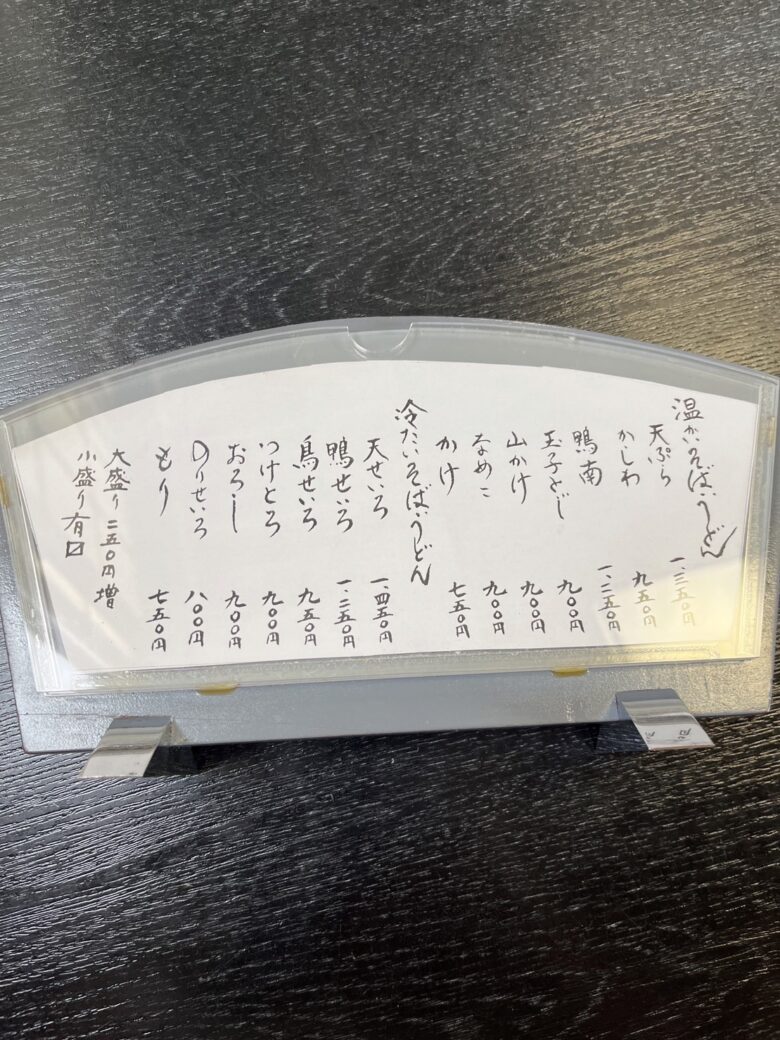 温かいそば、うどん
天ぷら 一、三五〇円
かしわ 九五〇円
鴨南 一、二五〇円
玉子とじ 九〇〇円
山かけ 九〇〇円
なめこ 九〇〇円
かけ 七五〇円
冷たいそば、うどん
天せいろ 一、四五〇円
鴨せいろ 一、二五〇円
鳥せいろ 九五〇円
つけとろ 九〇〇円
おろし 九〇〇円
のりせいろ 八〇〇円
もり 七五〇円
大盛り 二五〇円増
小盛り有